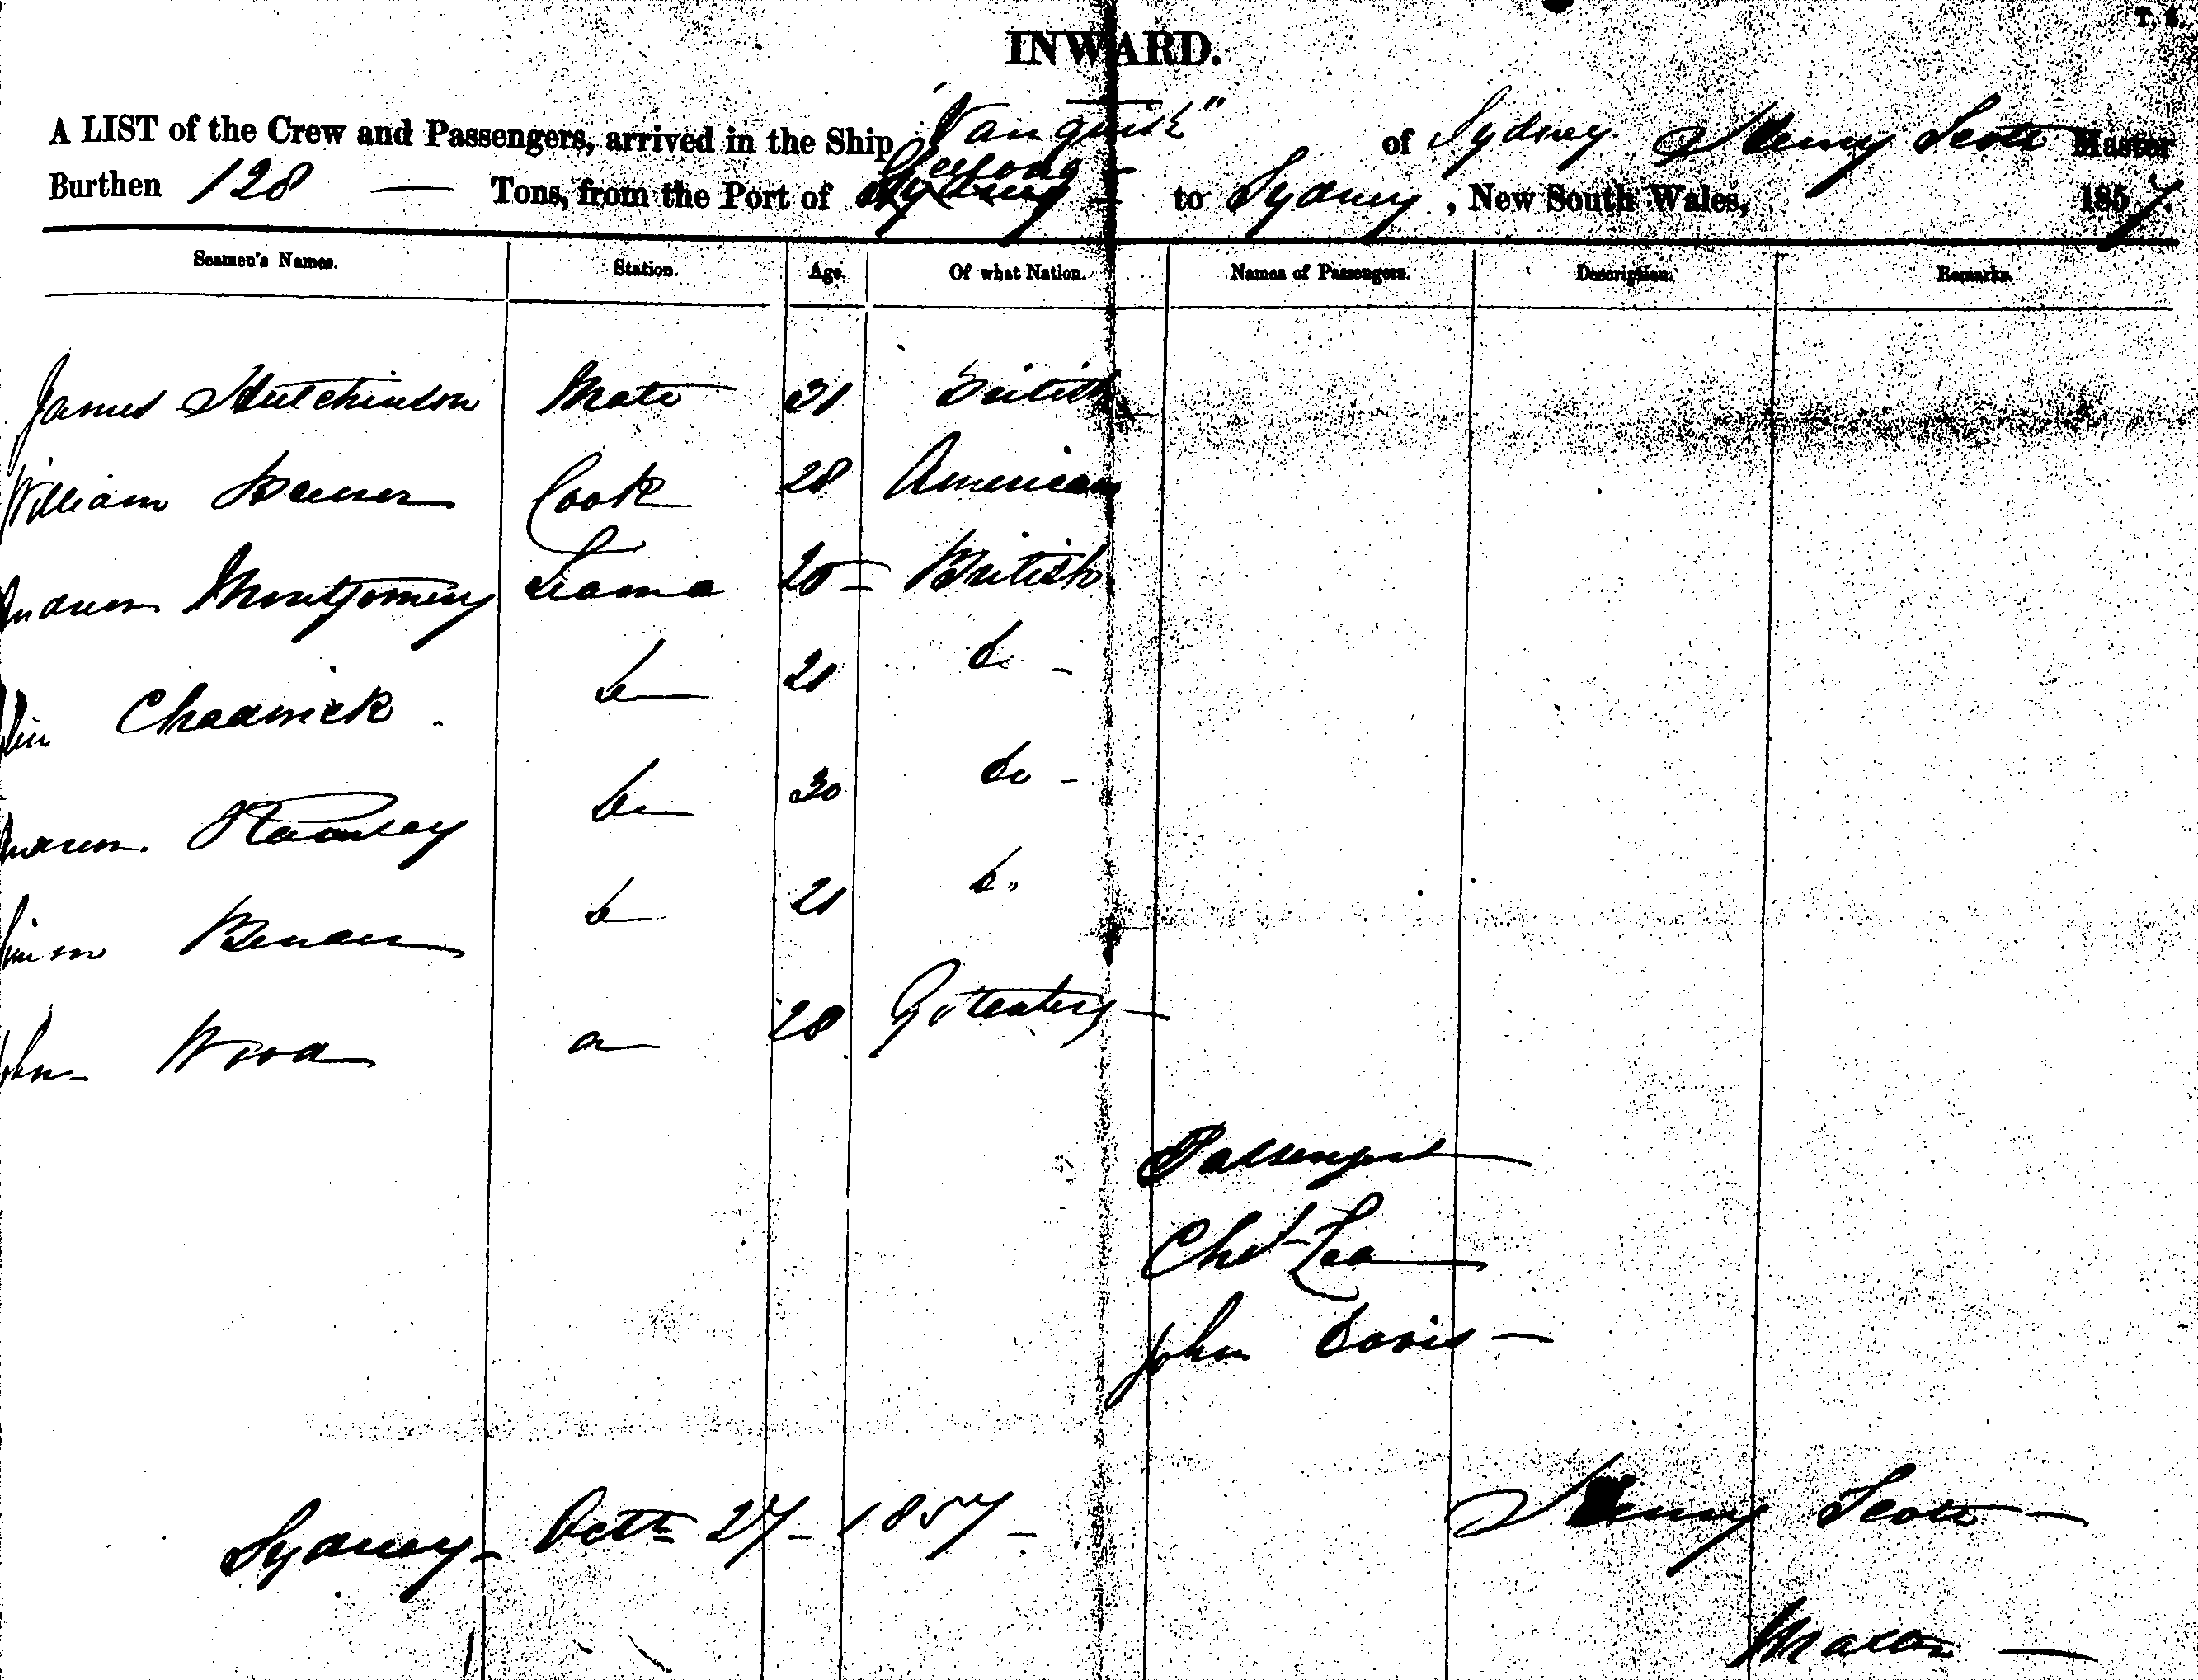 T. 5.
INWARD.
A LIST of the Crew and Passengers, arrived in the Ship "Vanquish" of Sydney Henry Scott Master
Burthen 128 — Tons, from the Port of Geelong to Sydney, New South Wales, 1857.
Seamen's Names. Station. Age. Of what Nation. Names of Passengers. Description. Remarks.
James Hutchinson Mate 31 British
William Cook 28 American
Andrew Montgomery Seama 20 British
Chadwick Do 21 Do
Andrew Do 30 Do
Do 21 Do
John Wood Do 28
Passengers
Chs Lea
John Davis
Sydney Octr 27 1857 Henry Scott
Master